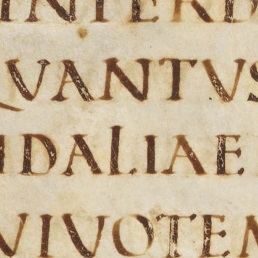 INTERD
QVANTVS
IDALIAE
VIVOTEM